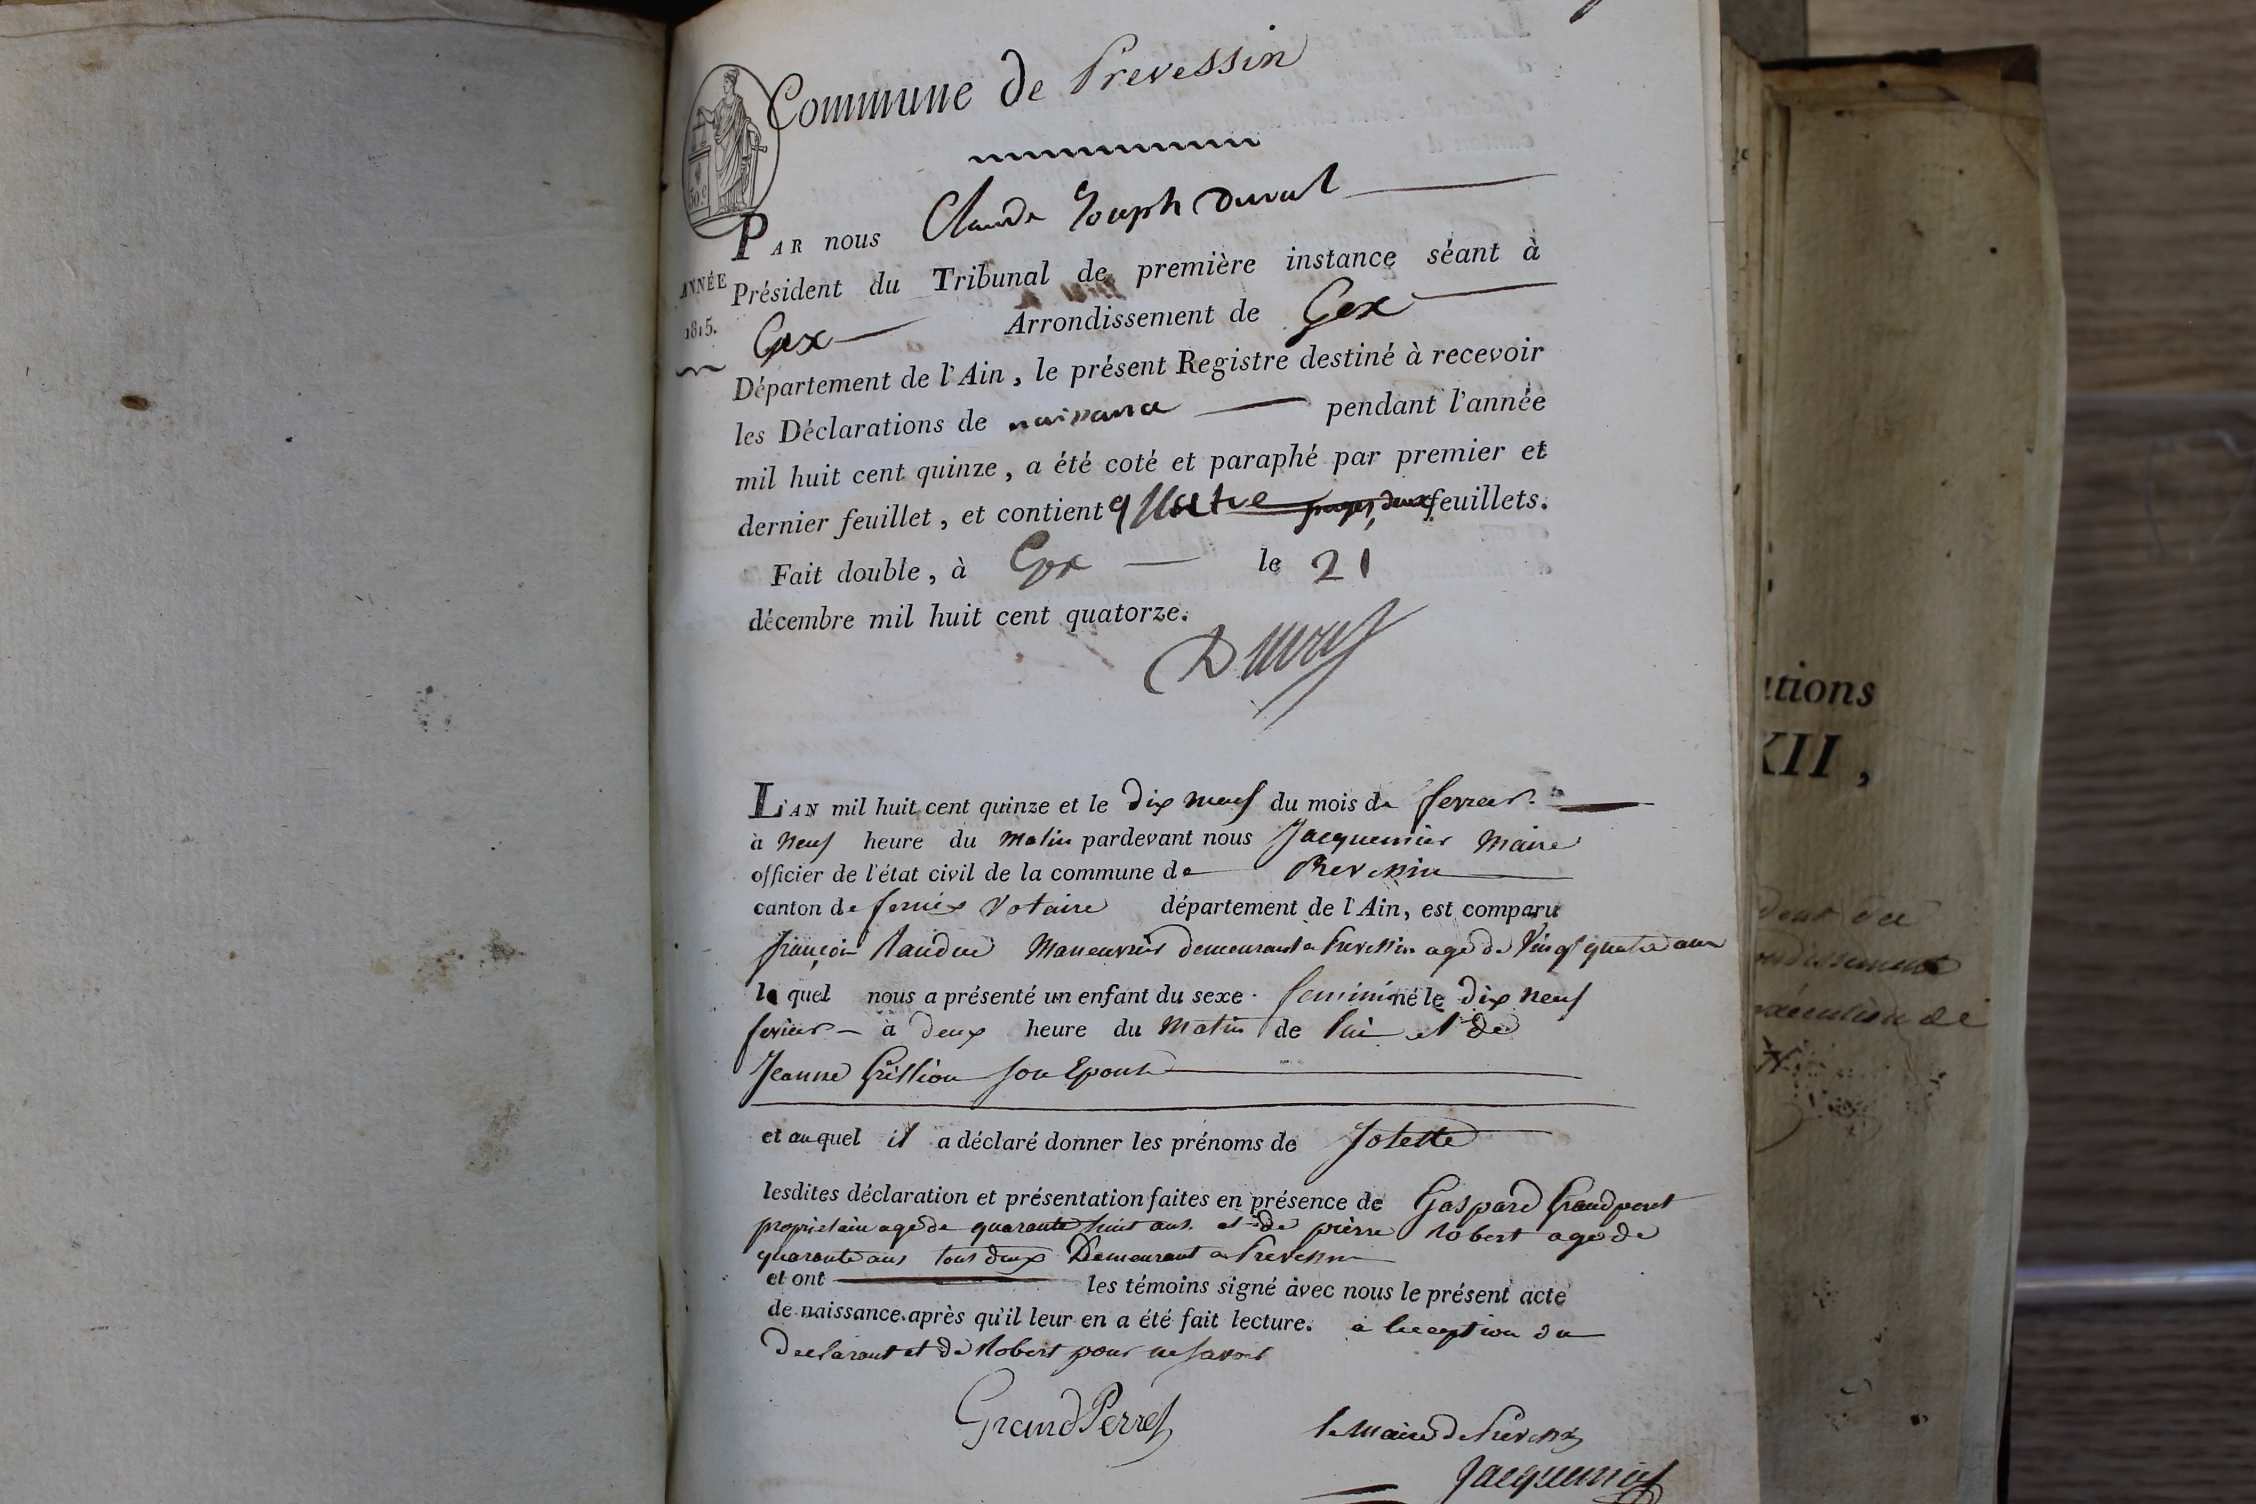 Commune de Prevessin
50 c
PAR nous Claude Joseph Duval
ANNÉE
1815.
Président du Tribunal de première instance séant à
Gex Arrondissement de Gex
Département de l'Ain, le présent Registre destiné à recevoir
les Déclarations de naissance pendant l'année
mil huit cent quinze, a été coté et paraphé par premier et
dernier feuillet, et contient quatre pages, deux feuillets.
Fait double, à Gex le 21
décembre mil huit cent quatorze.
Duval
L'AN mil huit cent quinze et le dix neuf du mois de fevrier
à neuf heure du matin pardevant nous Jacquemier Maire
officier de l'état civil de la commune de Prevessin
canton de fernex Votaire département de l'Ain, est comparu
françois Maneuvrier demeurant a Prevessin agé de Vingt quatre ans
lequel nous a présenté un enfant du sexe feminin né le dix neuf
fevrier à deux heure du Matin de lui et de
Jeanne son Epouse
et auquel il a déclaré donner les prénoms de Josette
lesdites déclaration et présentation faites en présence de Gaspard Grandperret
proprietaire agé de quarante huit ans et de pierre Robert agé de
quarante ans tous deux Demeurant a Prevessin
et ont les témoins signé avec nous le présent acte
de naissance après qu'il leur en a été fait lecture. a lexception du
Declarant et de Robert pour ne savoir
GrandPerret
le Maire de Prevessin
Jacquemier
ations
XII,